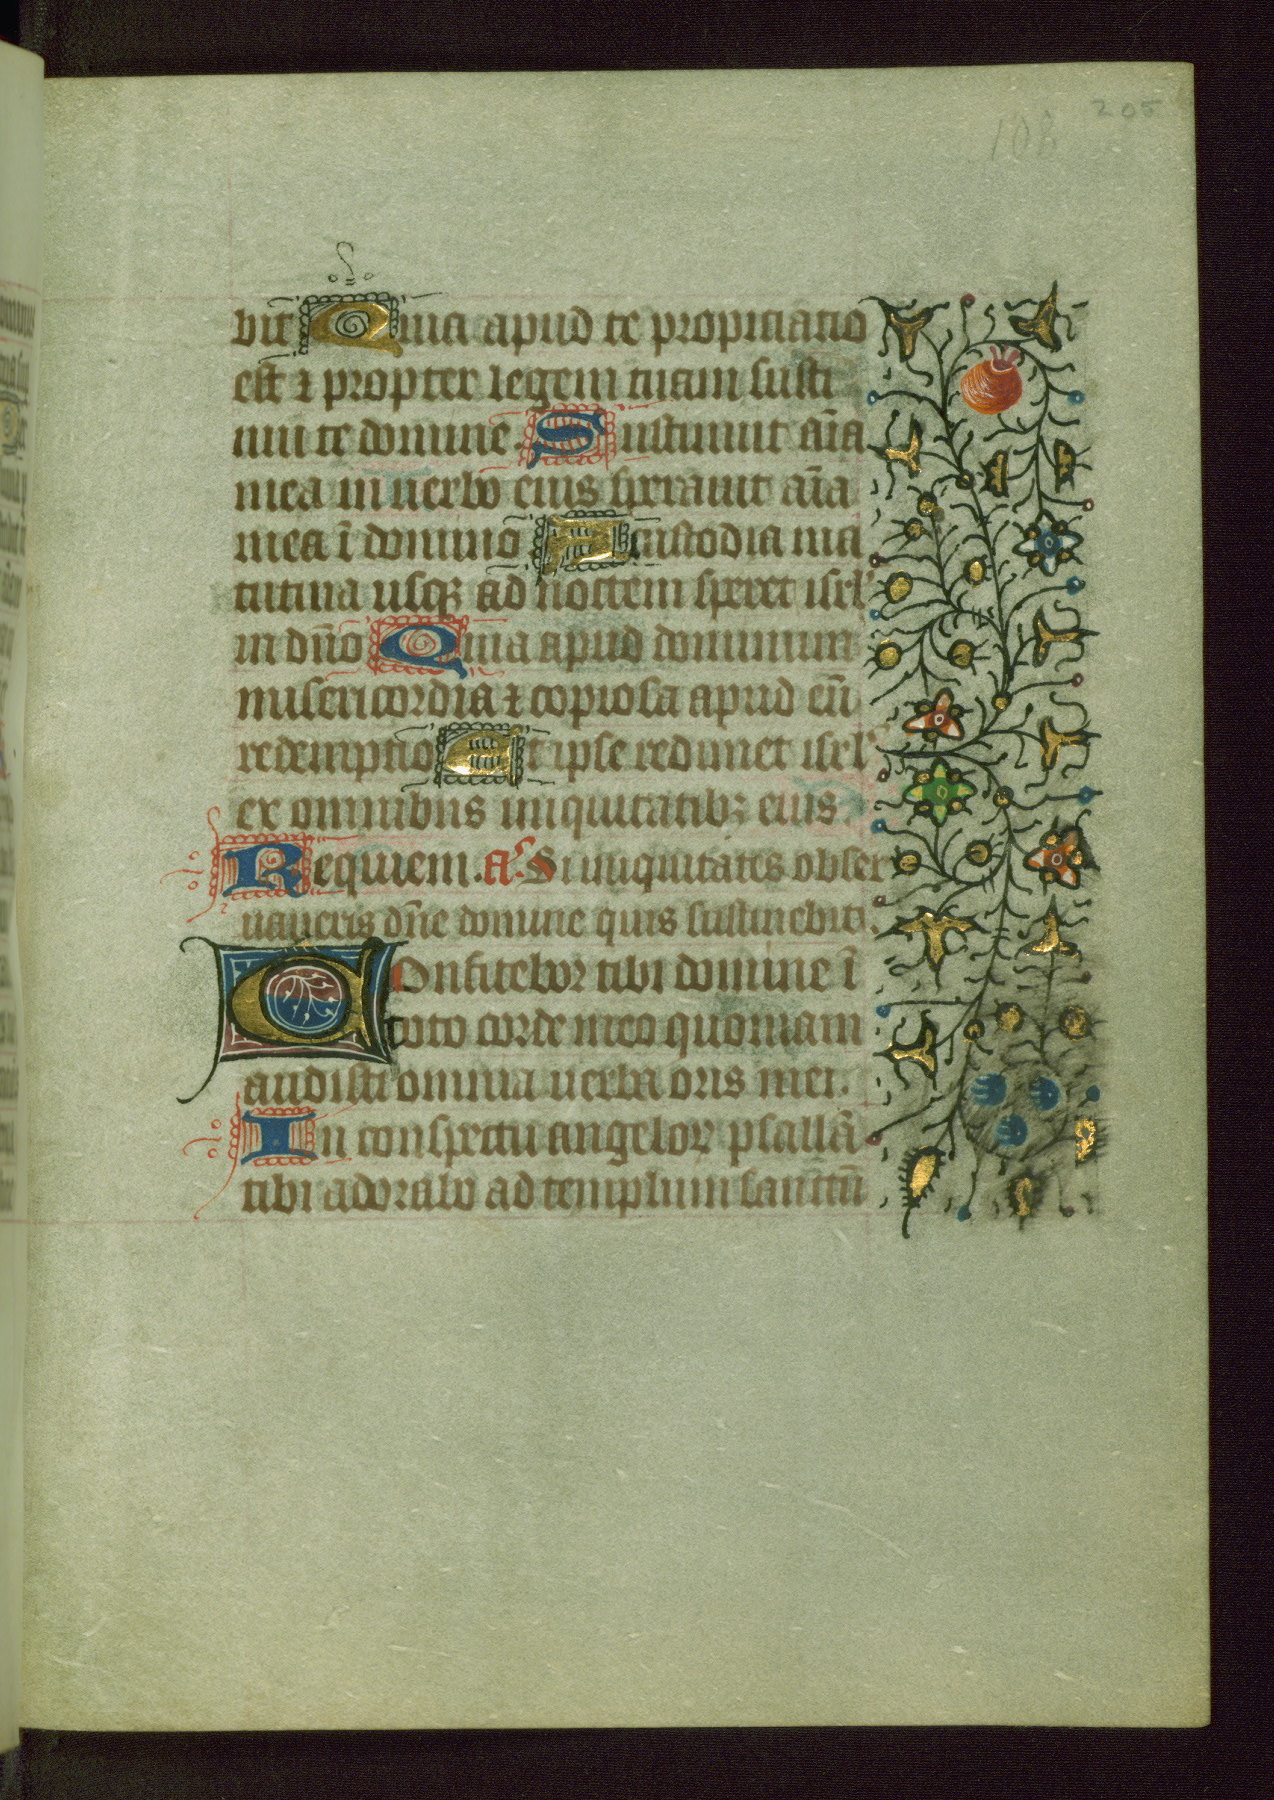 205
108
bit Quia apud te propiciatio
est ⁊ propter legem tuam susti
nui te domine. Sustinuit aīa
mea in uerbo eius sperauit aīa
mea ī domino A custodia ma
tutina usqꝫ ad noctem speret isrl'
in dn̄o Quia apud dominum
misericordia ⁊ copiosa apud eū
redemptio Et ipse redimet isrl'
ex omnibus iniquitatibꝫ eius.
Requiem. a. Si iniquitates obser
uaueris dn̄e domine quis sustinebit.
Confitebor tibi domine ī
toto corde meo quoniam
audisti omnia uerba oris mei.
In conspectu angeloꝝ psallā
tibi adorabo ad templum sanctū